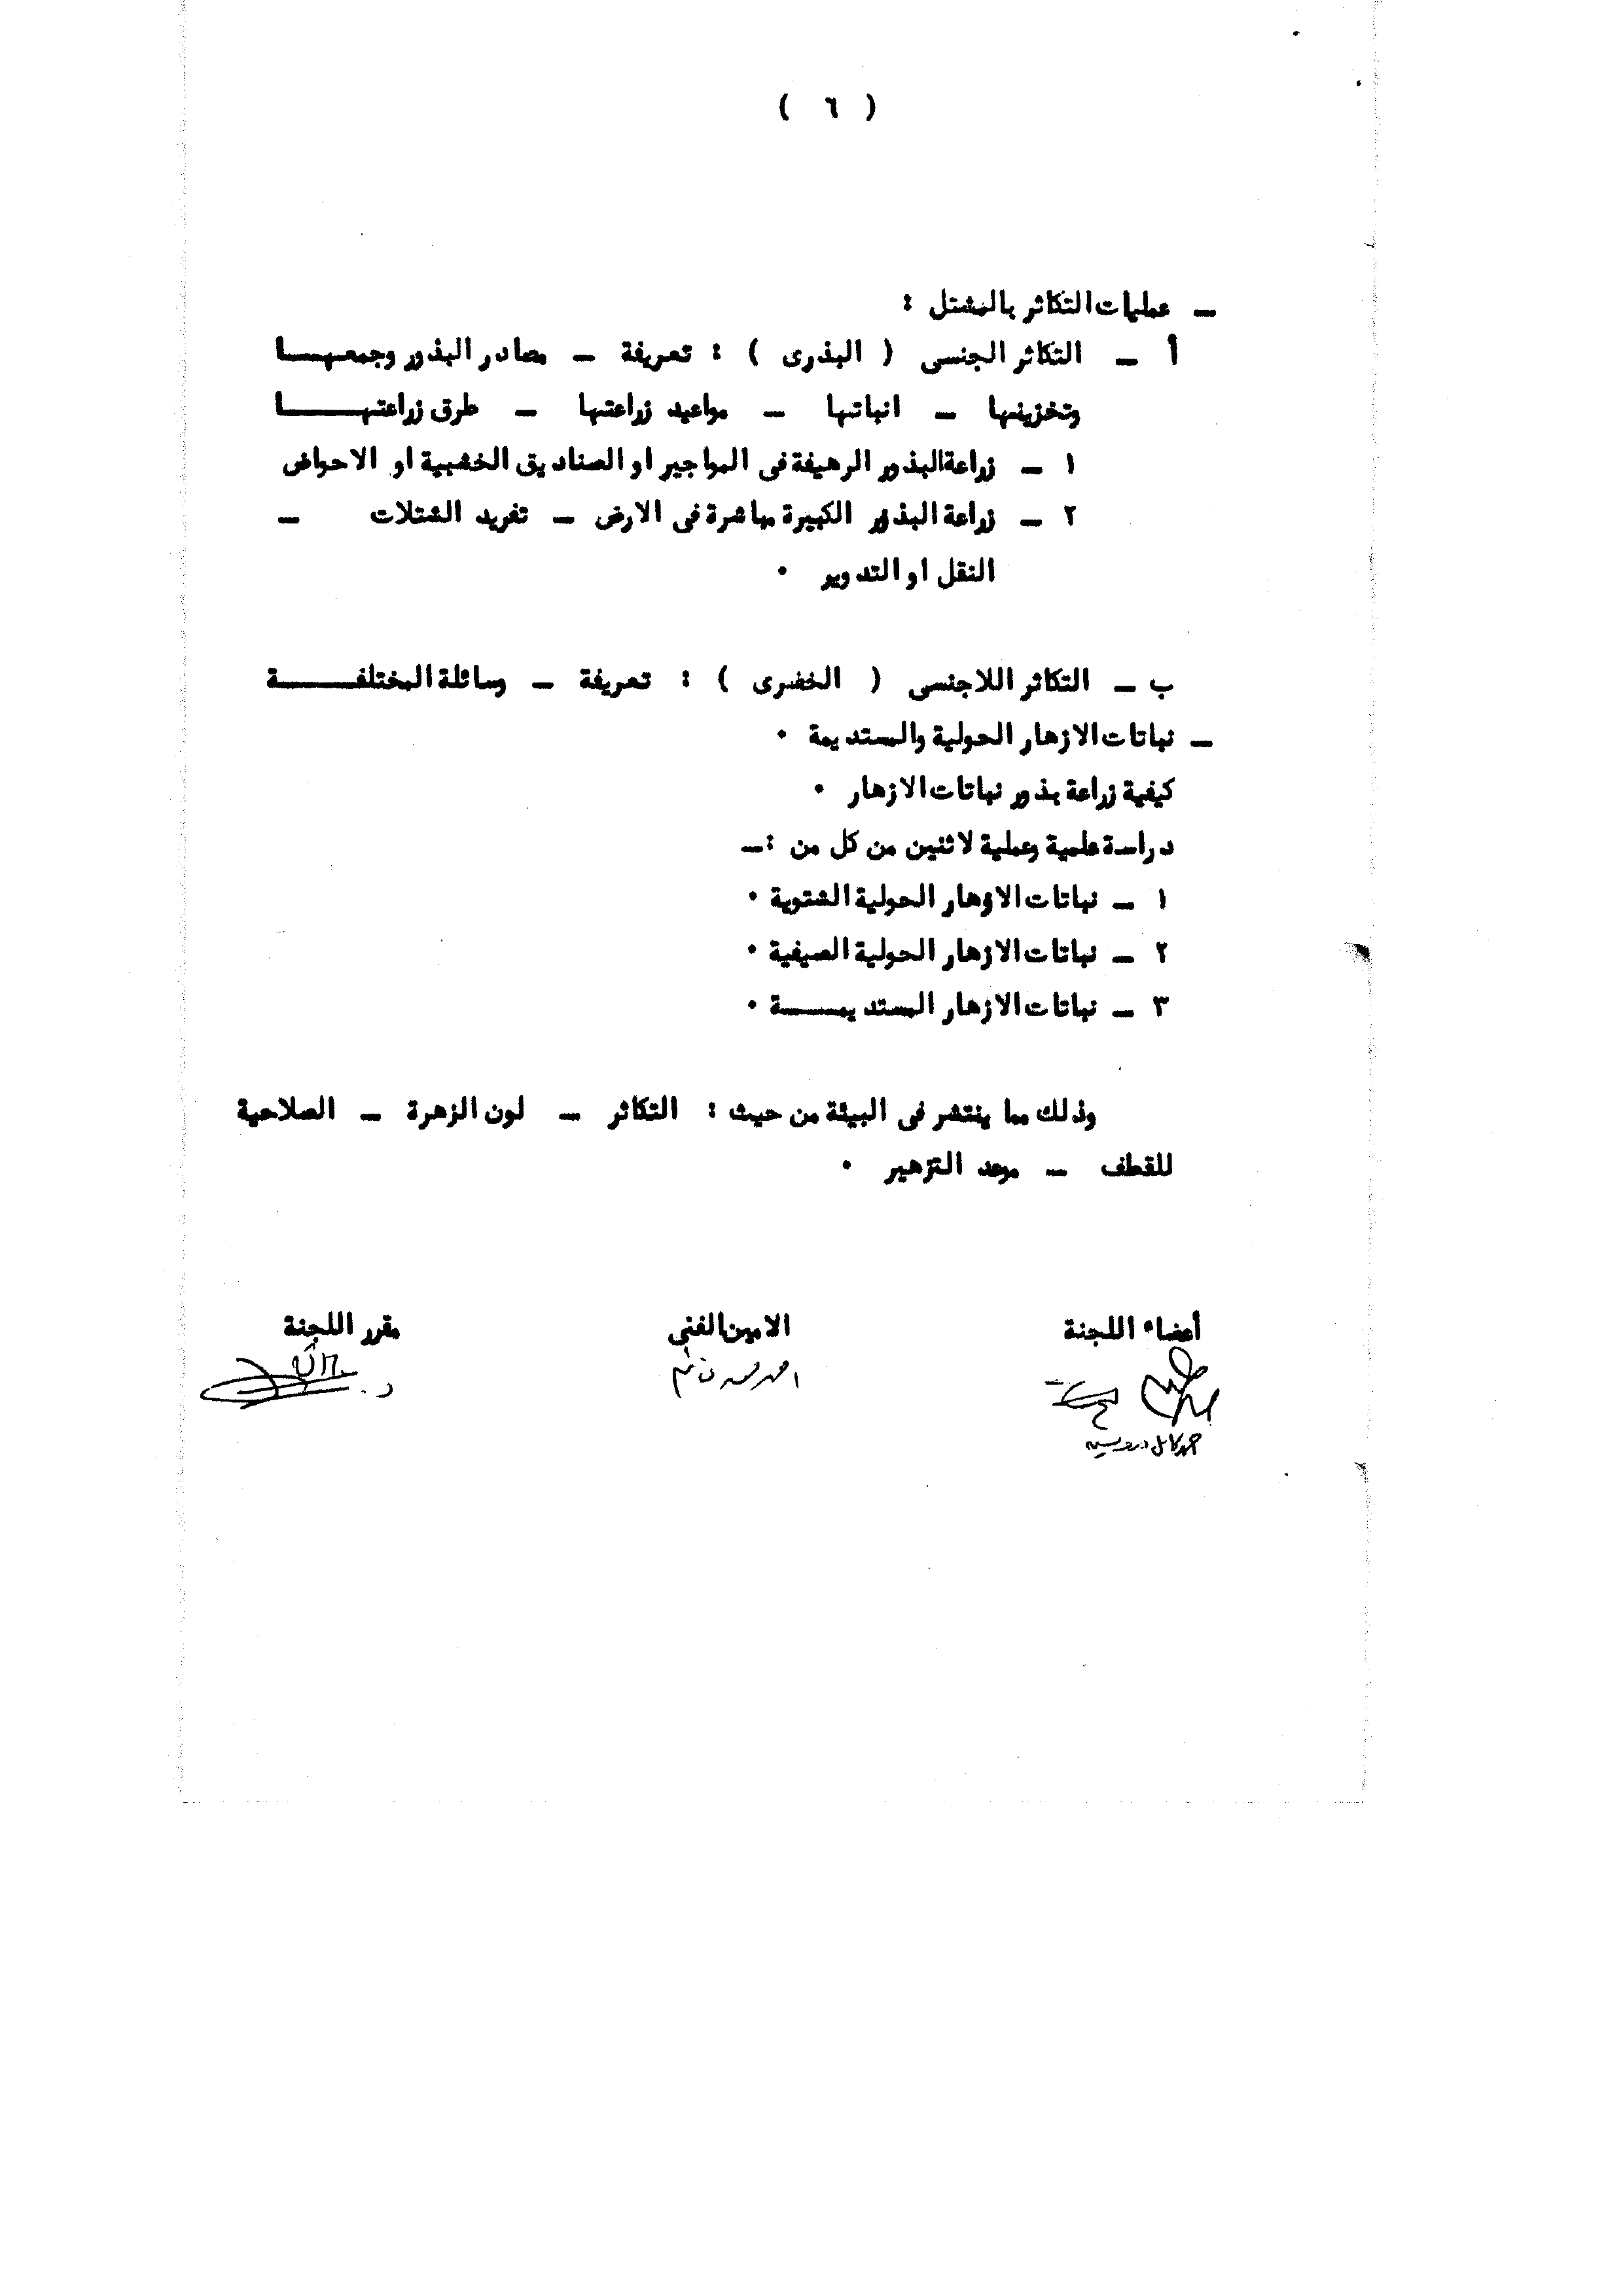 ( ٦ )
ـ عمليات التكاثر بالمشتل :
أ ـ التكاثر الجنسى ( البذرى ) : تعريفة ـ مصادر البذور وجمعهـــا
وتخزينها ـ انباتها ـ مواعيد زراعتها ـ طرق زراعتهـــــا
١ ـ زراعة البذور الرهيفة فى المواجير او الصناديق الخشبية او الاحواض
٢ ـ زراعة البذور الكبيرة مباشرة فى الارض ـ تفريد الشتلات ـ
النقل او التدوير ٠
ب ـ التكاثر اللاجنسى ( الخضرى ) : تعريفة ـ وسائلة المختلفــــــة
ـ نباتات الازهار الحولية والمستديمة ٠
كيفية زراعة بذور نباتات الازهار ٠
دراسة علمية وعملية لاثنين من كل من :ـ
١ ـ نباتات الازهار الحولية الشتوية ٠
٢ ـ نباتات الازهار الحولية الصيفية ٠
٣ ـ نباتات الازهار المستديمــــة ٠
وذلك مما ينتشر فى البيئة من حيث : التكاثر ـ لون الزهرة ـ الصلاحية
للقطف ـ موعد التزهير ٠
أعضاء اللجنة الامين الفنى مقرر اللجنة